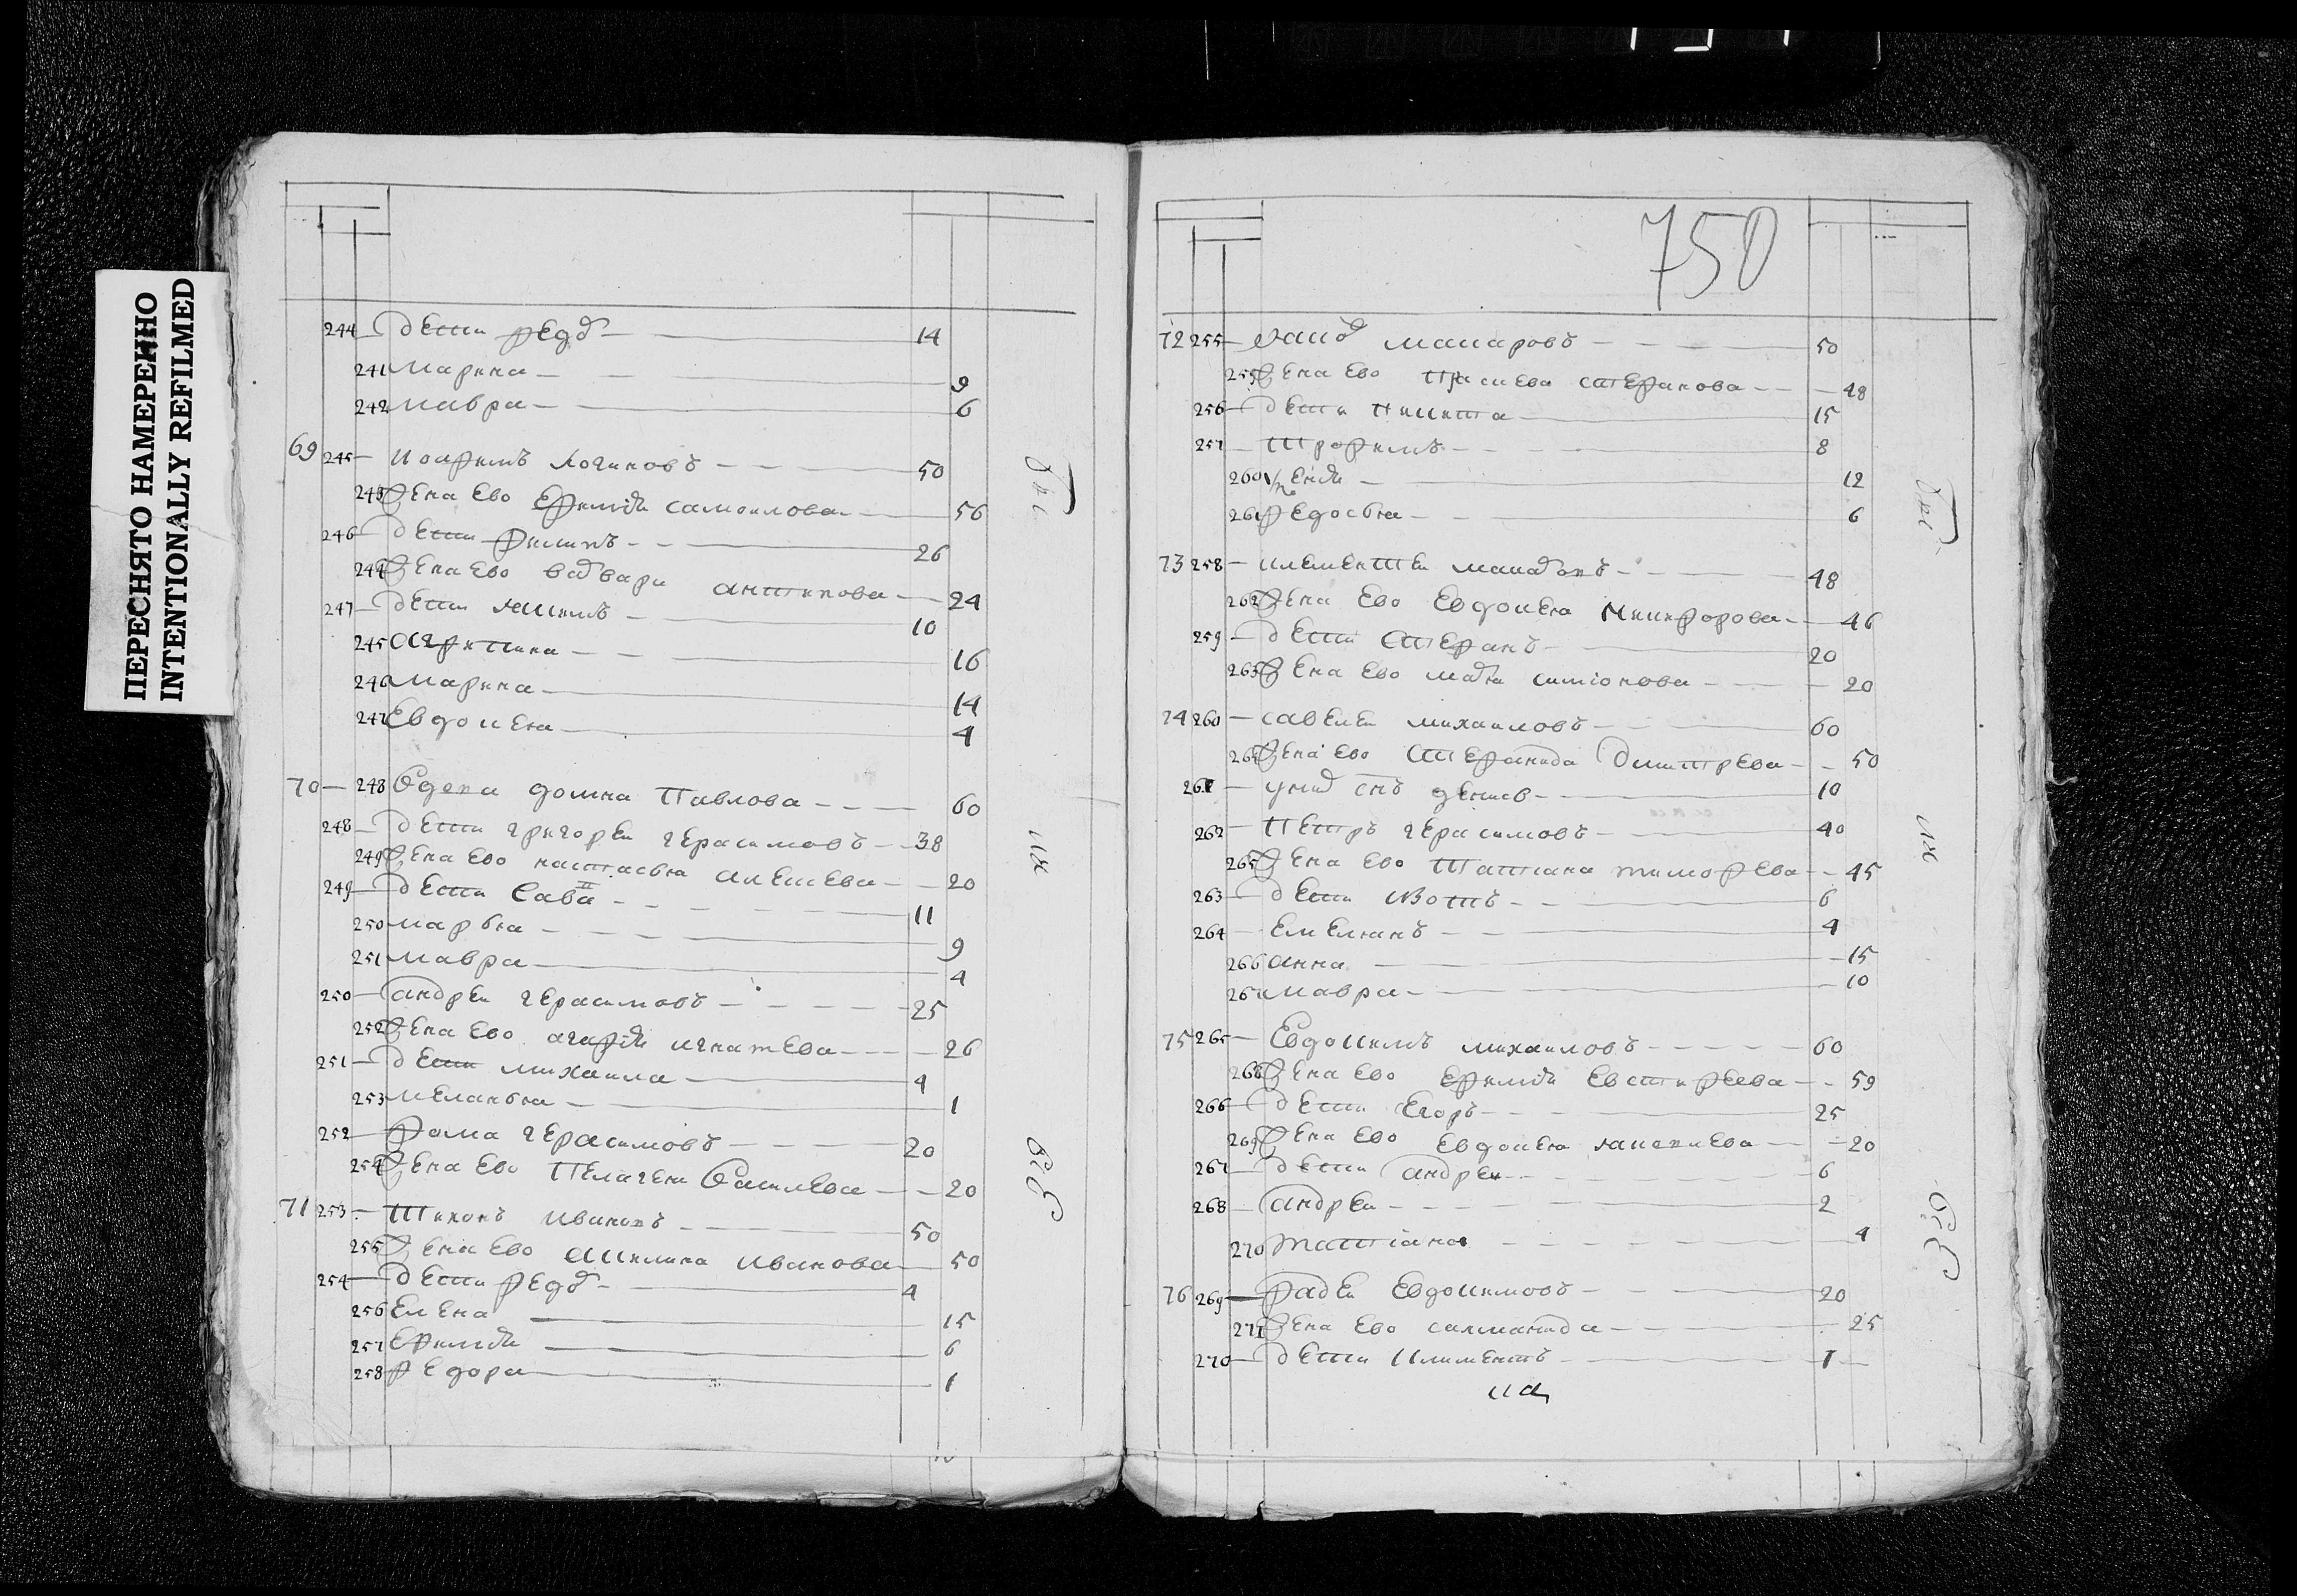 ПЕРЕСНЯТО НАМЕРЕННО
INTENTIONALLY REFILMED
244 дети федоръ 14
241 марина 9
242 мавра 6
69 245 иоафимъ логиновъ 50
243 жена ево ефимия самоилова 56
246 дети филипъ 26
244 жена ево варвара антипова 24
247 дети якимъ 10
245 агрипина 16
246 марина 14
247 Евдокея 4
70 248 вдова домна павлова 60
248 дети григореи герасимовъ 38
249 жена ево настасья алексева 20
249 дети сава 11
250 марья 9
251 мавра 4
250 андреи герасимовъ 25
252 жена ево агафия игнатева 26
251 дети михаила 4
253 меланья 1
252 фома герасимовъ 20
254 жена ево пелагея василева 20
71 253 тихонъ ивановъ 50
255 жена ево акилина иванова 50
254 дети федоръ 4
256 елена 15
257 ефимия 6
258 федора 1
750
72 255 яковъ макаровъ 50
259 жена ево стефанова 48
256 дети никита 15
257 трофимъ 8
260 12
261 федосья 6
73 258 клементеи макаровъ 48
262 жена ево евдокея никифорова 46
259 дети стефанъ 20
263 жена ево марья симионова 20
74 260 савелеи михаиловъ 60
264 жена ево стефанида димитрева 50
261 у нихъ снъ денисъ 10
262 петръ герасимовъ 40
265 жена ево татиана тимофева 45
263 дети изотъ 6
264 емелианъ 4
266 анна 15
267 мавра 10
75 265 евдокимъ михаиловъ 60
268 жена ево ефимия евстифеева 59
266 дети егоръ 25
269 жена ево евдокея 20
267 дети андреи 6
268 андреи 2
270 татиана 4
76 269 фадеи евдокимовъ 20
271 жена ево саломанида 25
270 дети климентъ 1